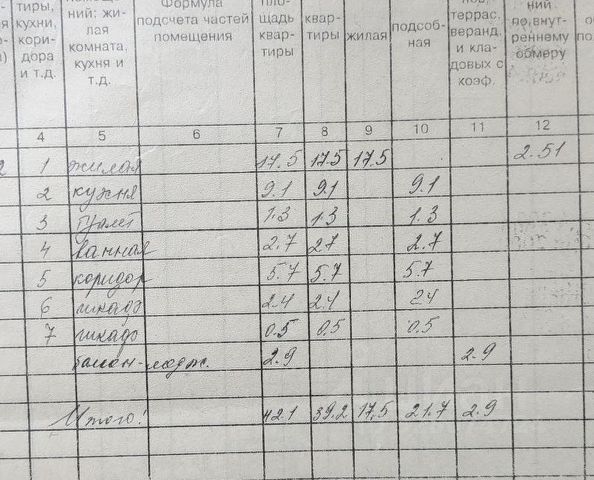 тиры, ний: жи- Формула пло- нов, ний
кухни, лая подсчета частей щадь квар- подсоб- террас, по внут-
кори- комната, помещения квар- тиры жилая ная веранд реннему
дора кухня и тиры и кла- обмеру
и т.д. т.д. довых с
коэф.
4 5 6 7 8 9 10 11 12
2 1 жилая 17.5 17.5 17.5 2.51
2 кухня 9.1 9.1 9.1
3 туалет 1.3 1.3 1.3
4 ванная 2.7 2.7 2.7
5 коридор 5.7 5.7 5.7
6 шкаф 2.4 2.4 2.4
7 шкаф 0.5 0.5 0.5
балкон-лодж. 2.9 2.9
Итого! 42.1 39.2 17.5 21.7 2.9